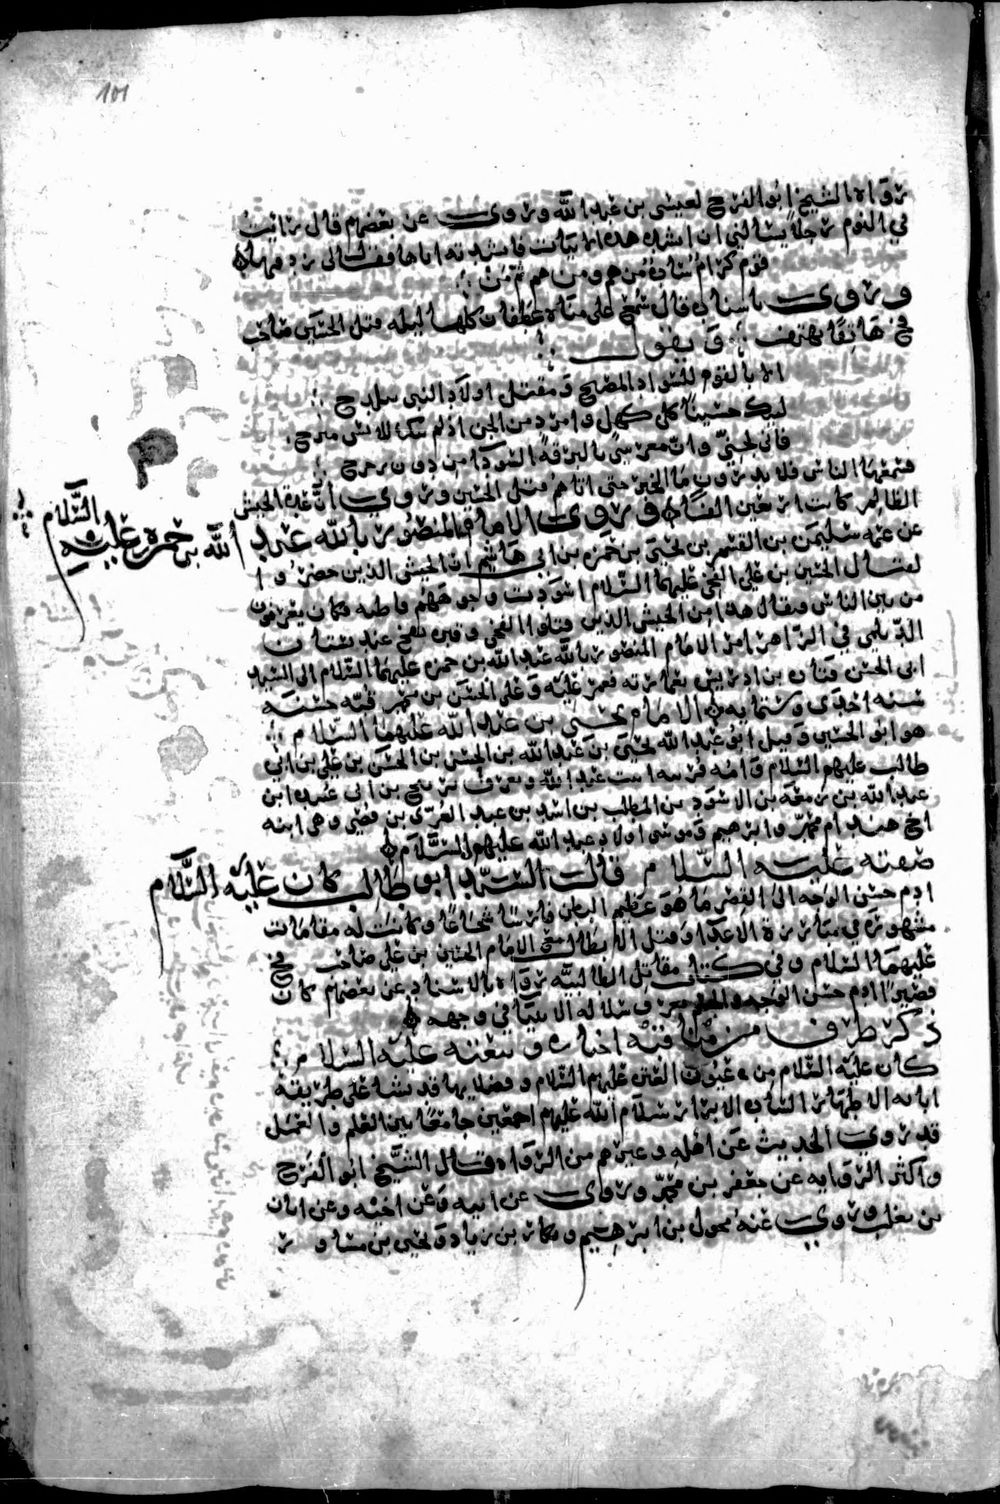 101
رواه الشيخ ابو الفرج لعيسى بن عبد الله وروى عن بعضهم قال رايت
في النوم رجلا يسالني ان انشده هذه الابيات فانشدته اياها فقال لي زد فيها
قوم كرام سادة من هم ومن هم ثم من
وروى باسناده قال سمع على مياه غطفان كلها ليلة قتل الحسين صاحب
فخ هاتفا يهتف ويقول
الا يا لقوم للسواد المصبح ومقتل اولاد النبي ببلدح
ليبك حسينا كل كهل وامرد من الجن اذ لم تبك للانس
فاني لجني وان معرسي بالبرقة السودا من دون زحزح
فسمعها الناس فلا يدرون ما الخبر حتى اتاهم قتل الحسين وروى ان عدة الجيش
الظالم كانت اربعين الفا وروى الامام المنصور بالله عبد الله بن حمزة عليه السلام
عن عمه سليمن بن القسم بن يحيى بن حمزه بن ابي هاشم ان الجيش الذين حضروا
لقتال الحسين بن علي الفخي عليهما السلام اسودت وجوههم قاطبة فكان يعرفون
من بين الناس فيقال هذا من الجيش الذين قتلوا الفخي وقبره بفخ عند
الديلمي في الزاهر امر الامام المنصور بالله عبد الله بن حمزه عليهما السلام الى السيد
ابي الحسن قتادة بن ادريس بعمارته فعمر عليه وعلى الحسن بن محمد قبة حسنة
سنة احدى وستمايه الامام يحيى بن عبد الله عليهما السلام
هو ابو الحسين وقيل ابو عبد الله يحيى بن عبد الله بن الحسن بن الحسن بن علي بن ابي
طالب عليهم السلام وامه قريبة ابنت عبد الله ويعرف بربيح بن ابي عبيدة ابن
عبد الله بن زمعة بن الاسود بن المطلب بن اسد بن عبد العزى بن قصي وهي ابنة
اخ هند ام محمد وابرهيم وموسى اولاد عبد الله عليهم السلام
صفته عليه السلام قال السيد ابو طالب كان عليه السلام
ادم حسن الوجه الى القصر ما هو عظيم البطن فارسا شجاعا وكانت له مقامات
مشهورة في مبارزة الاعدا وقتل الابطال مع الامام الحسين بن علي صاحب فخ
عليهما السلام وفي كتاب مقاتل الطالبيه رواه بالاسناد عن بعضهم كان
قصيرا ادم حسن الوجه والجسم يعرف سلالة الانبيا في وجهه
ذكر طرف من مناقبه اخباره وبيعته عليه السلام
كان عليه السلام من عيون العترة عليهم السلام وفضلايها قد نشا على طريقة
ابايه الاطهار السادة الابرار سلام الله عليهم اجمعين جامعا بين العلم والعمل
قد روى الحديث عن اهله وغيرهم من الرواه قال الشيخ ابو الفرج
واكثر الروايه عن جعفر بن محمد وروى عن ابيه وعن اخيه وعن ابان
بن تغلب وروى عنه مخول بن ابرهيم وبكار بن زياد ويحيى بن مساور